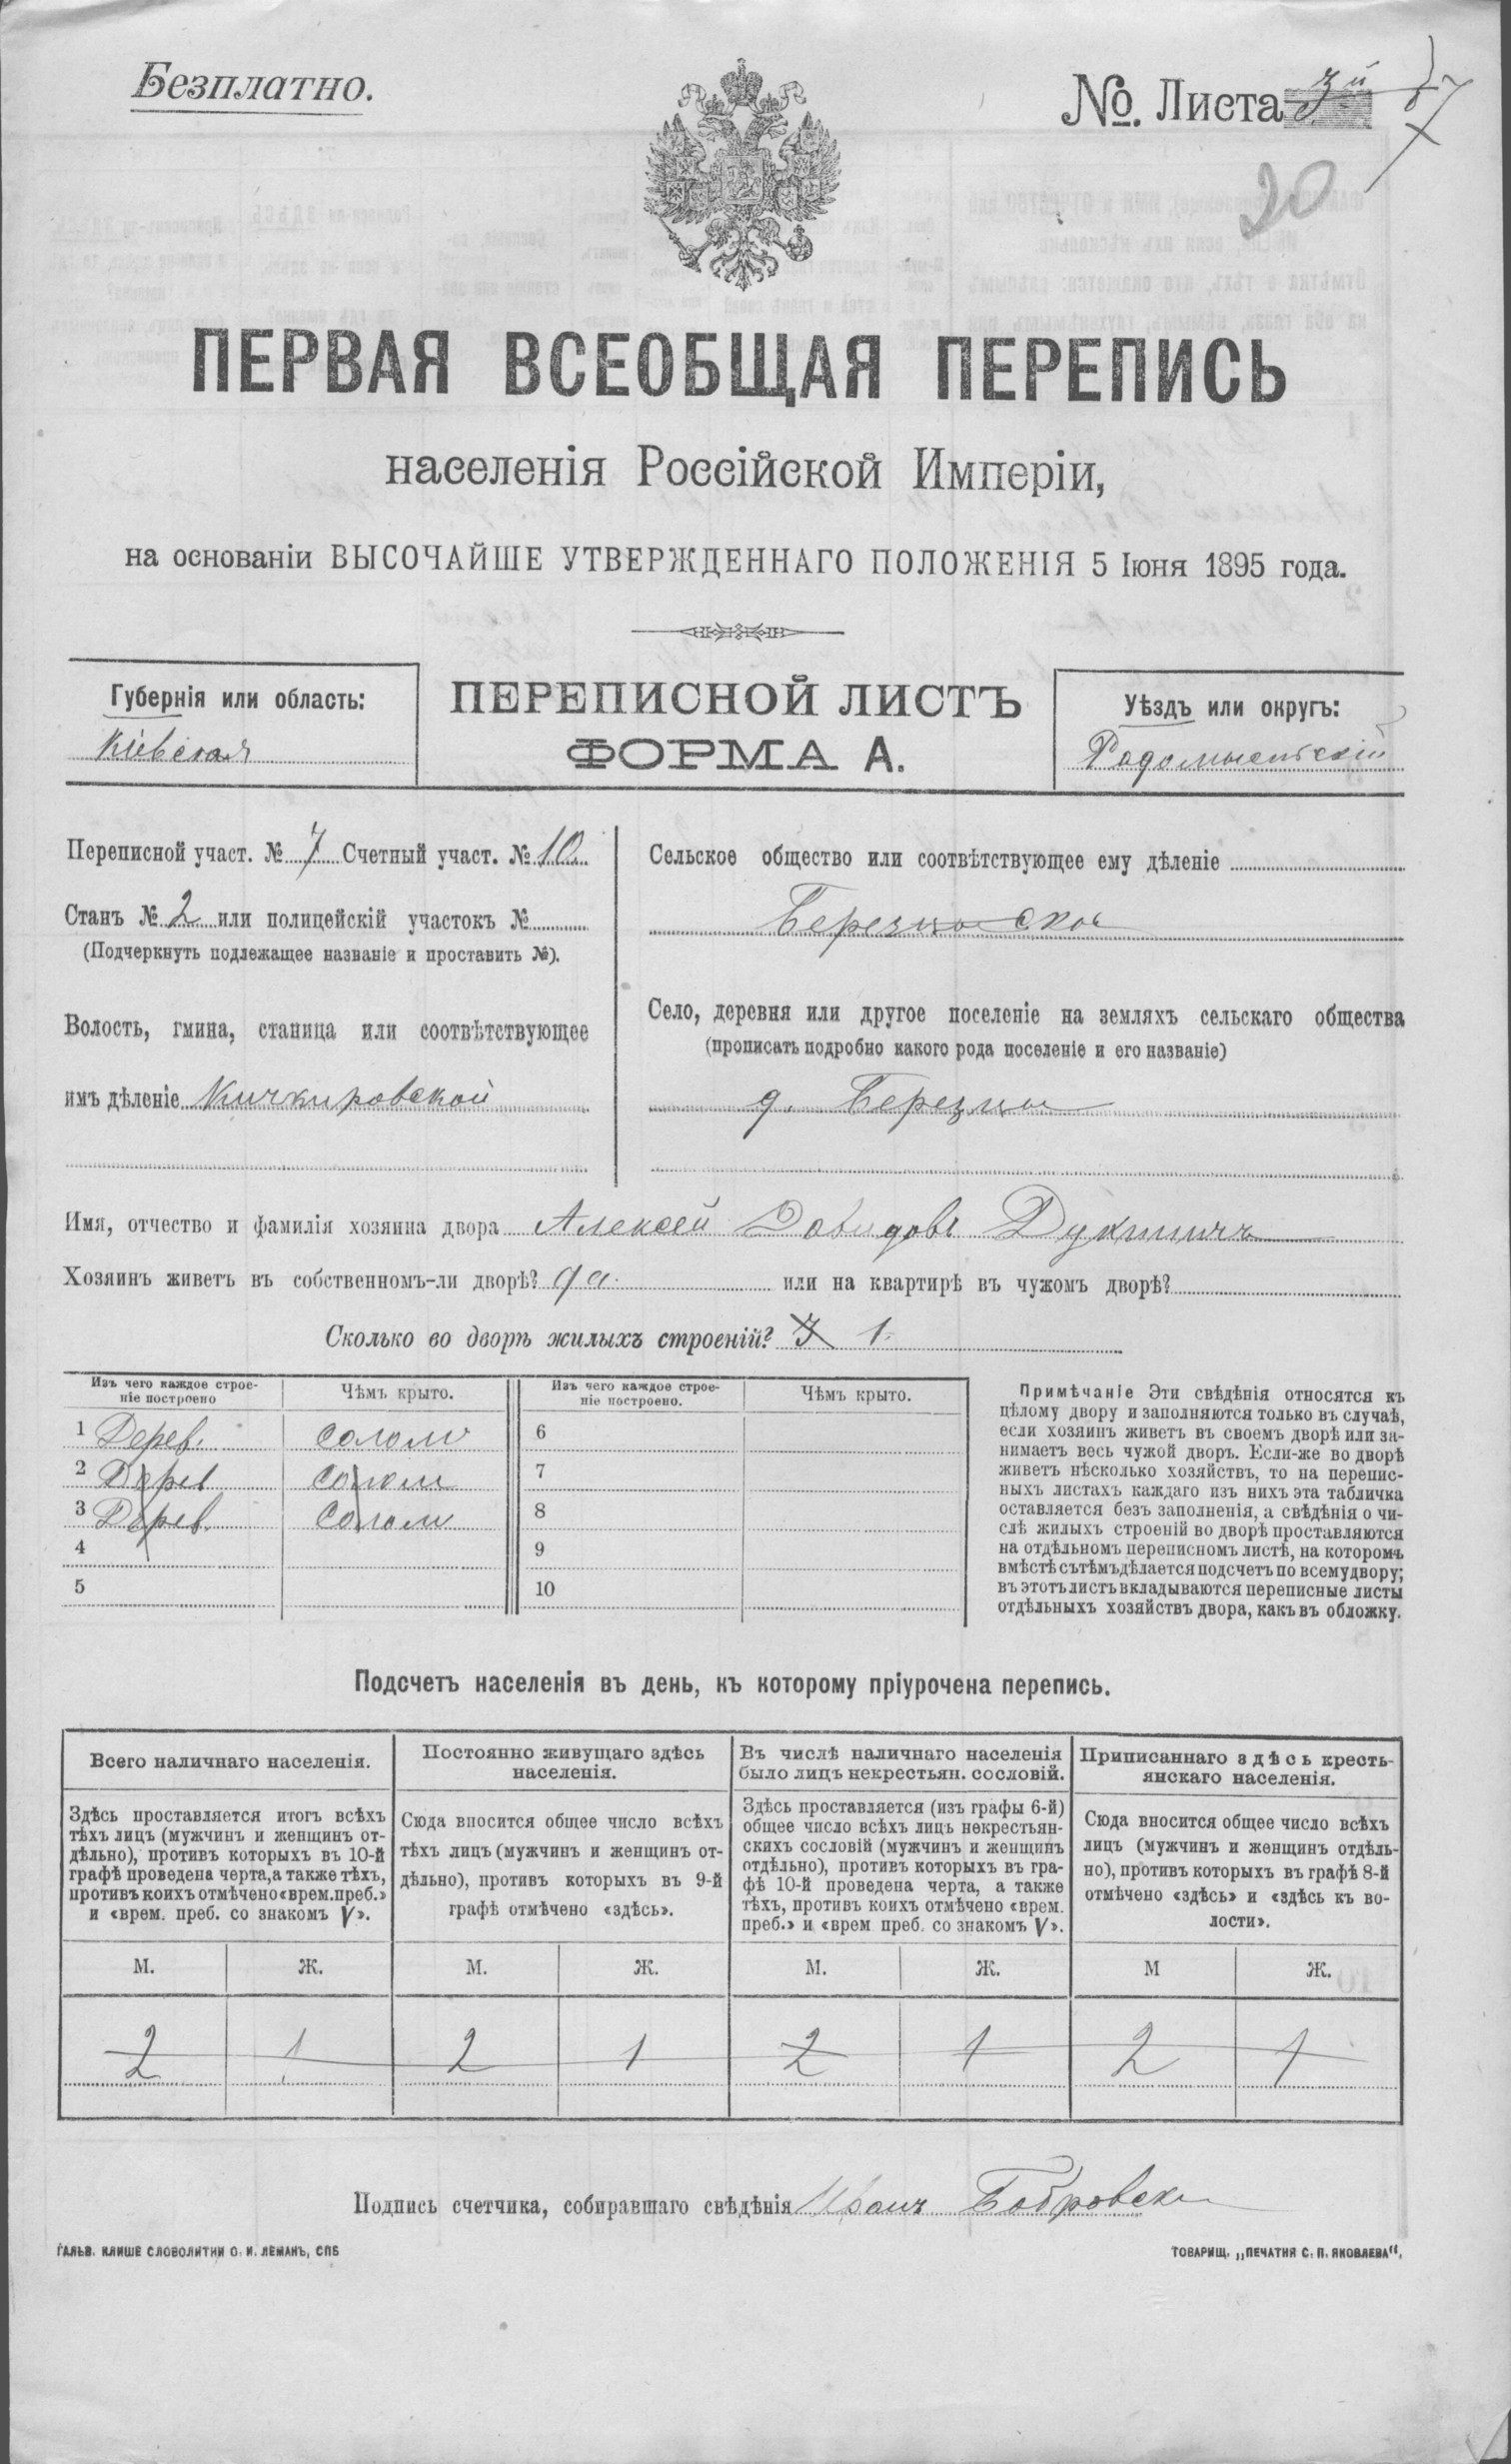 Безплатно.
№. Листа 3й 7
20
ПЕРВАЯ ВСЕОБЩАЯ ПЕРЕПИСЬ
населенія Россійской Имперіи,
на основаніи ВЫСОЧАЙШЕ УТВЕРЖДЕННАГО ПОЛОЖЕНІЯ 5 Іюня 1895 года.
Губернія или область:
Кіевская
ПЕРЕПИСНОЙ ЛИСТЪ
ФОРМА А.
Уѣздъ или округъ:
Радомысльскій
Переписной участ. № 7 Счетный участ. № 10
Станъ № 2 или полицейскій участокъ №
(Подчеркнуть подлежащее названіе и проставить №).
Волость, гмина, станица или соотвѣтствующее
имъ дѣленіе Кичкировской
Сельское общество или соотвѣтствующее ему дѣленіе
Село, деревня или другое поселеніе на земляхъ сельскаго общества
(прописать подробно какого рода поселеніе и его названіе)
д. Березцы
Имя, отчество и фамилія хозяина двора Алексей Давидовъ
Хозяинъ живетъ въ собственномъ-ли дворѣ? да. или на квартирѣ въ чужомъ дворѣ?
Сколько во дворѣ жилыхъ строеній? 3 1.
Изъ чего каждое строе-
ніе построено
Чѣмъ крыто.
1 Дерев. солом
2 Дерев солом
3 Дерев. солом
4
5
Изъ чего каждое строе-
ніе построено.
Чѣмъ крыто.
6
7
8
9
10
Примѣчаніе Эти свѣдѣнія относятся къ
цѣлому двору и заполняются только въ случаѣ,
если хозяинъ живетъ въ своемъ дворѣ или за-
нимаетъ весь чужой дворъ. Если-же во дворѣ
живетъ нѣсколько хозяйствъ, то на перепис-
ныхъ листахъ каждаго изъ нихъ эта табличка
оставляется безъ заполненія, а свѣдѣнія о чи-
слѣ жилыхъ строеній во дворѣ проставляются
на отдѣльномъ переписномъ листѣ, на которомъ
вмѣстѣ съ тѣмъ дѣлается подсчетъ по всему двору;
въ этотъ листъ вкладываются переписные листы
отдѣльныхъ хозяйствъ двора, какъ въ обложку.
Подсчетъ населенія въ день, къ которому пріурочена перепись.
Всего наличнаго населенія.
Здѣсь проставляется итогъ всѣхъ
тѣхъ лицъ (мужчинъ и женщинъ от-
дѣльно), противъ которыхъ въ 10-й
графѣ проведена черта, а также тѣхъ,
противъ коихъ отмѣчено «врем. преб.»
и «врем. преб. со знакомъ V».
М. Ж.
2 1
Постоянно живущаго здѣсь
населенія.
Сюда вносится общее число всѣхъ
тѣхъ лицъ (мужчинъ и женщинъ от-
дѣльно), противъ которыхъ въ 9-й
графѣ отмѣчено «здѣсь».
М. Ж.
2 1
Въ числѣ наличнаго населенія
было лицъ некрестьян. сословій.
Здѣсь проставляется (изъ графы 6-й)
общее число всѣхъ лицъ некрестьян-
скихъ сословій (мужчинъ и женщинъ
отдѣльно), противъ которыхъ въ гра-
фѣ 10-й проведена черта, а также
тѣхъ, противъ коихъ отмѣчено «врем.
преб.» и «врем преб. со знакомъ V».
М. Ж.
2 1
Приписаннаго здѣсь кресть-
янскаго населенія.
Сюда вносится общее число всѣхъ
лицъ (мужчинъ и женщинъ отдѣль-
но), противъ которыхъ въ графѣ 8-й
отмѣчено «здѣсь» и «здѣсь къ во-
лости».
М Ж.
2 1
Подпись счетчика, собиравшаго свѣдѣнія Иванъ Бобровски
ГАЛЬВ. КЛИШЕ СЛОВОЛИТНИ О. И. ЛЕМАНЪ, СПБ
ТОВАРИЩ. „ПЕЧАТНЯ С. П. ЯКОВЛЕВА“.